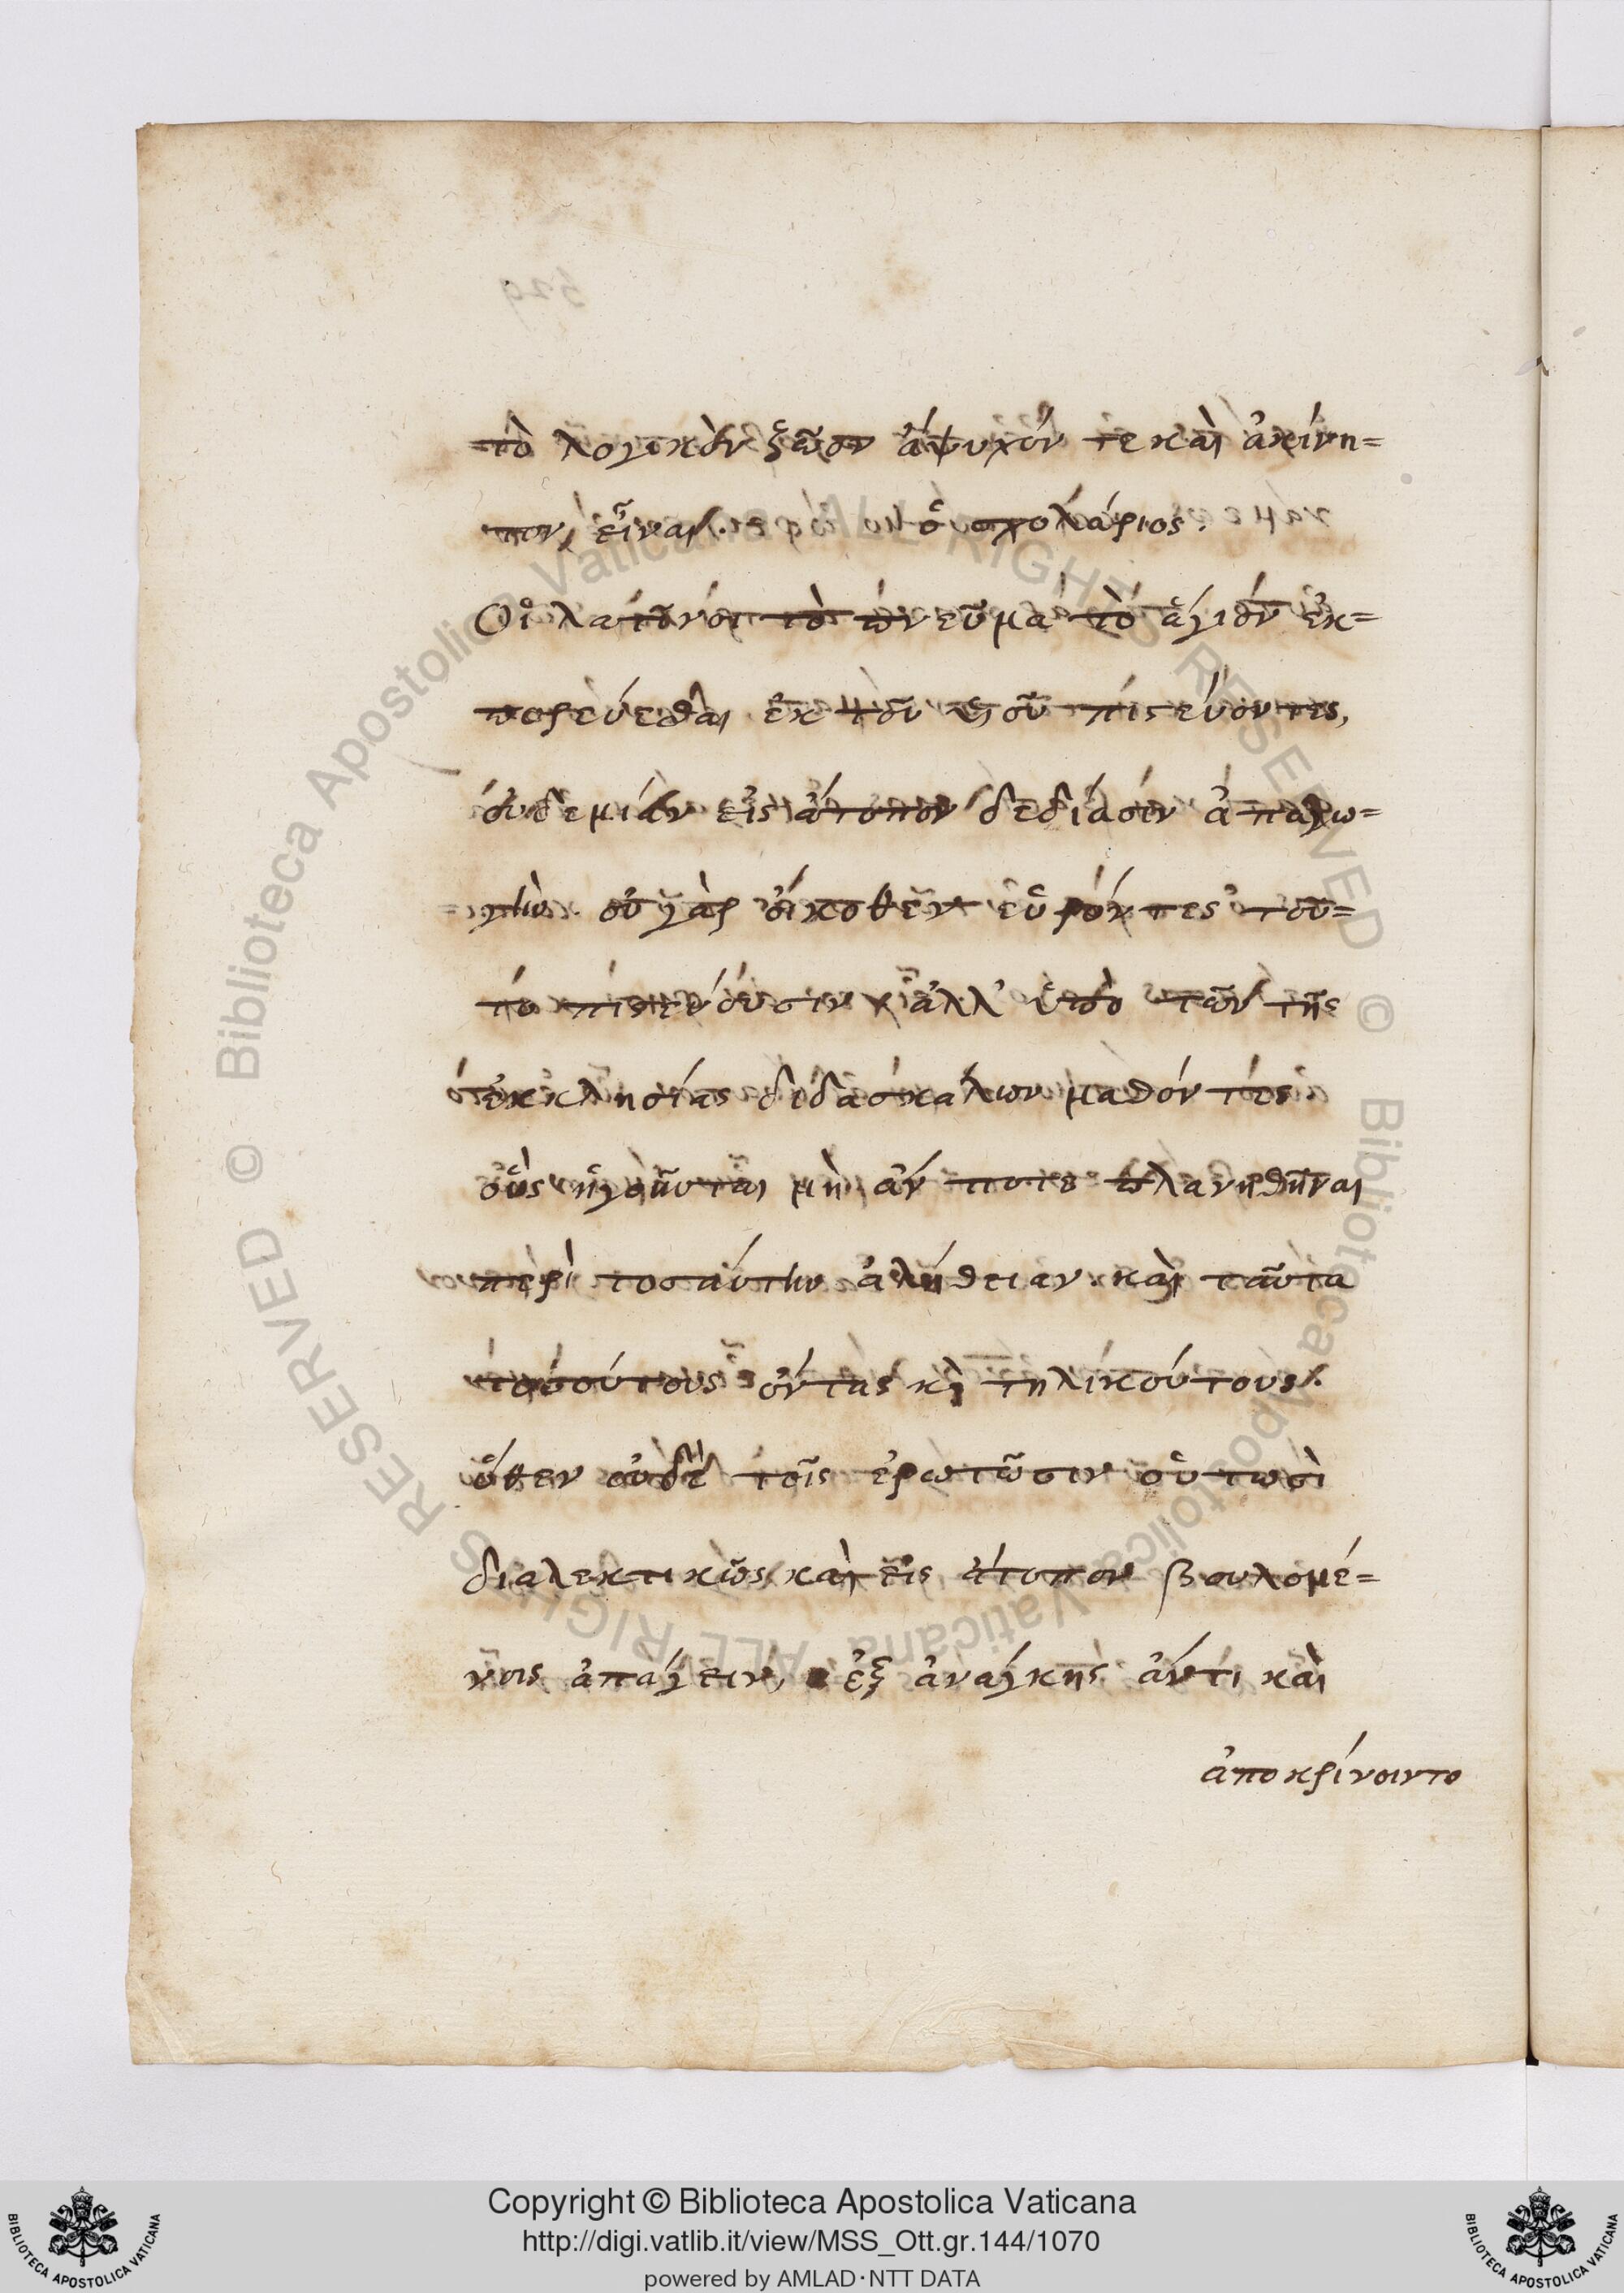 τὸ λογικὸν ζῶον ἄψυχόν τε καὶ ἀκίνη=
τον, εἶναι. ὁ σχολάριος.
Οἱ λατῖνοι τὸ πνεῦμα τὸ ἅγιον ἐκ=
πορεύεσθαι ἐκ τοῦ υἱοῦ πιστεύοντες,
οὐδεμίαν εἰς ἄτοπον δεδίασιν ἀπαγω=
γὴν. οὐ γὰρ οἴκοθεν εὑρόντες τοῦ=
το πιστεύουσιν, ἀλλ' ὑπὸ τῶν τῆς
ἐκκλησίας διδασκάλων μαθόντες
οὓς ἡγοῦνται μὴ ἄν ποτε πλανηθῆναι
περὶ τοσαύτην ἀλήθειαν. καὶ ταῦτα
τοσούτους ὄντας κỳ τηλικούτους.
ὅθεν οὐδὲ τοῖς ἐρωτῶσιν οὑτωσὶ
διαλεκτικῶς καὶ εἰς ἄτοπον βουλομέ=
νοις ἀπάγειν, ἐξ ἀνάγκης ἄν τι καὶ
ἀποκρίνοιντο
Copyright © Biblioteca Apostolica Vaticana
http://digi.vatlib.it/view/MSS_Ott.gr.144/1070
powered by AMLAD·NTT DATA